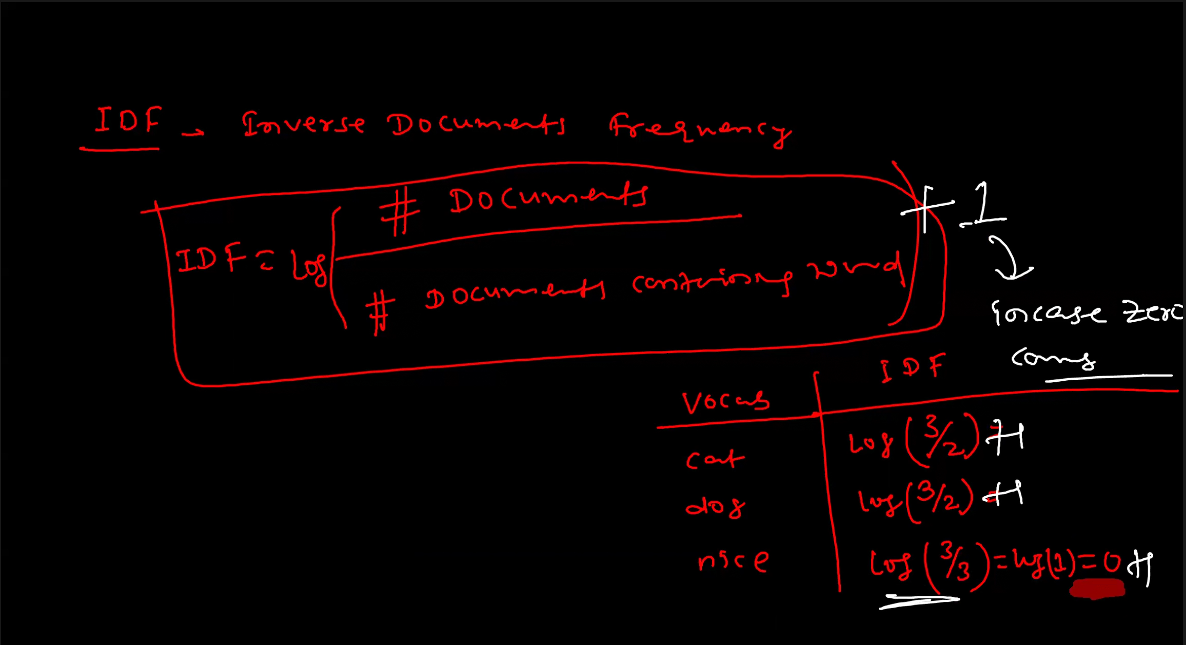 IDF → Inverse Documents Frequency
# Documents
IDF = log( ) + 1
# Documents containing word
incase zero
coms
Vocab IDF
cat log(3/2)+1
dog log(3/2)+1
nice log(3/3)=log(1)=0+1